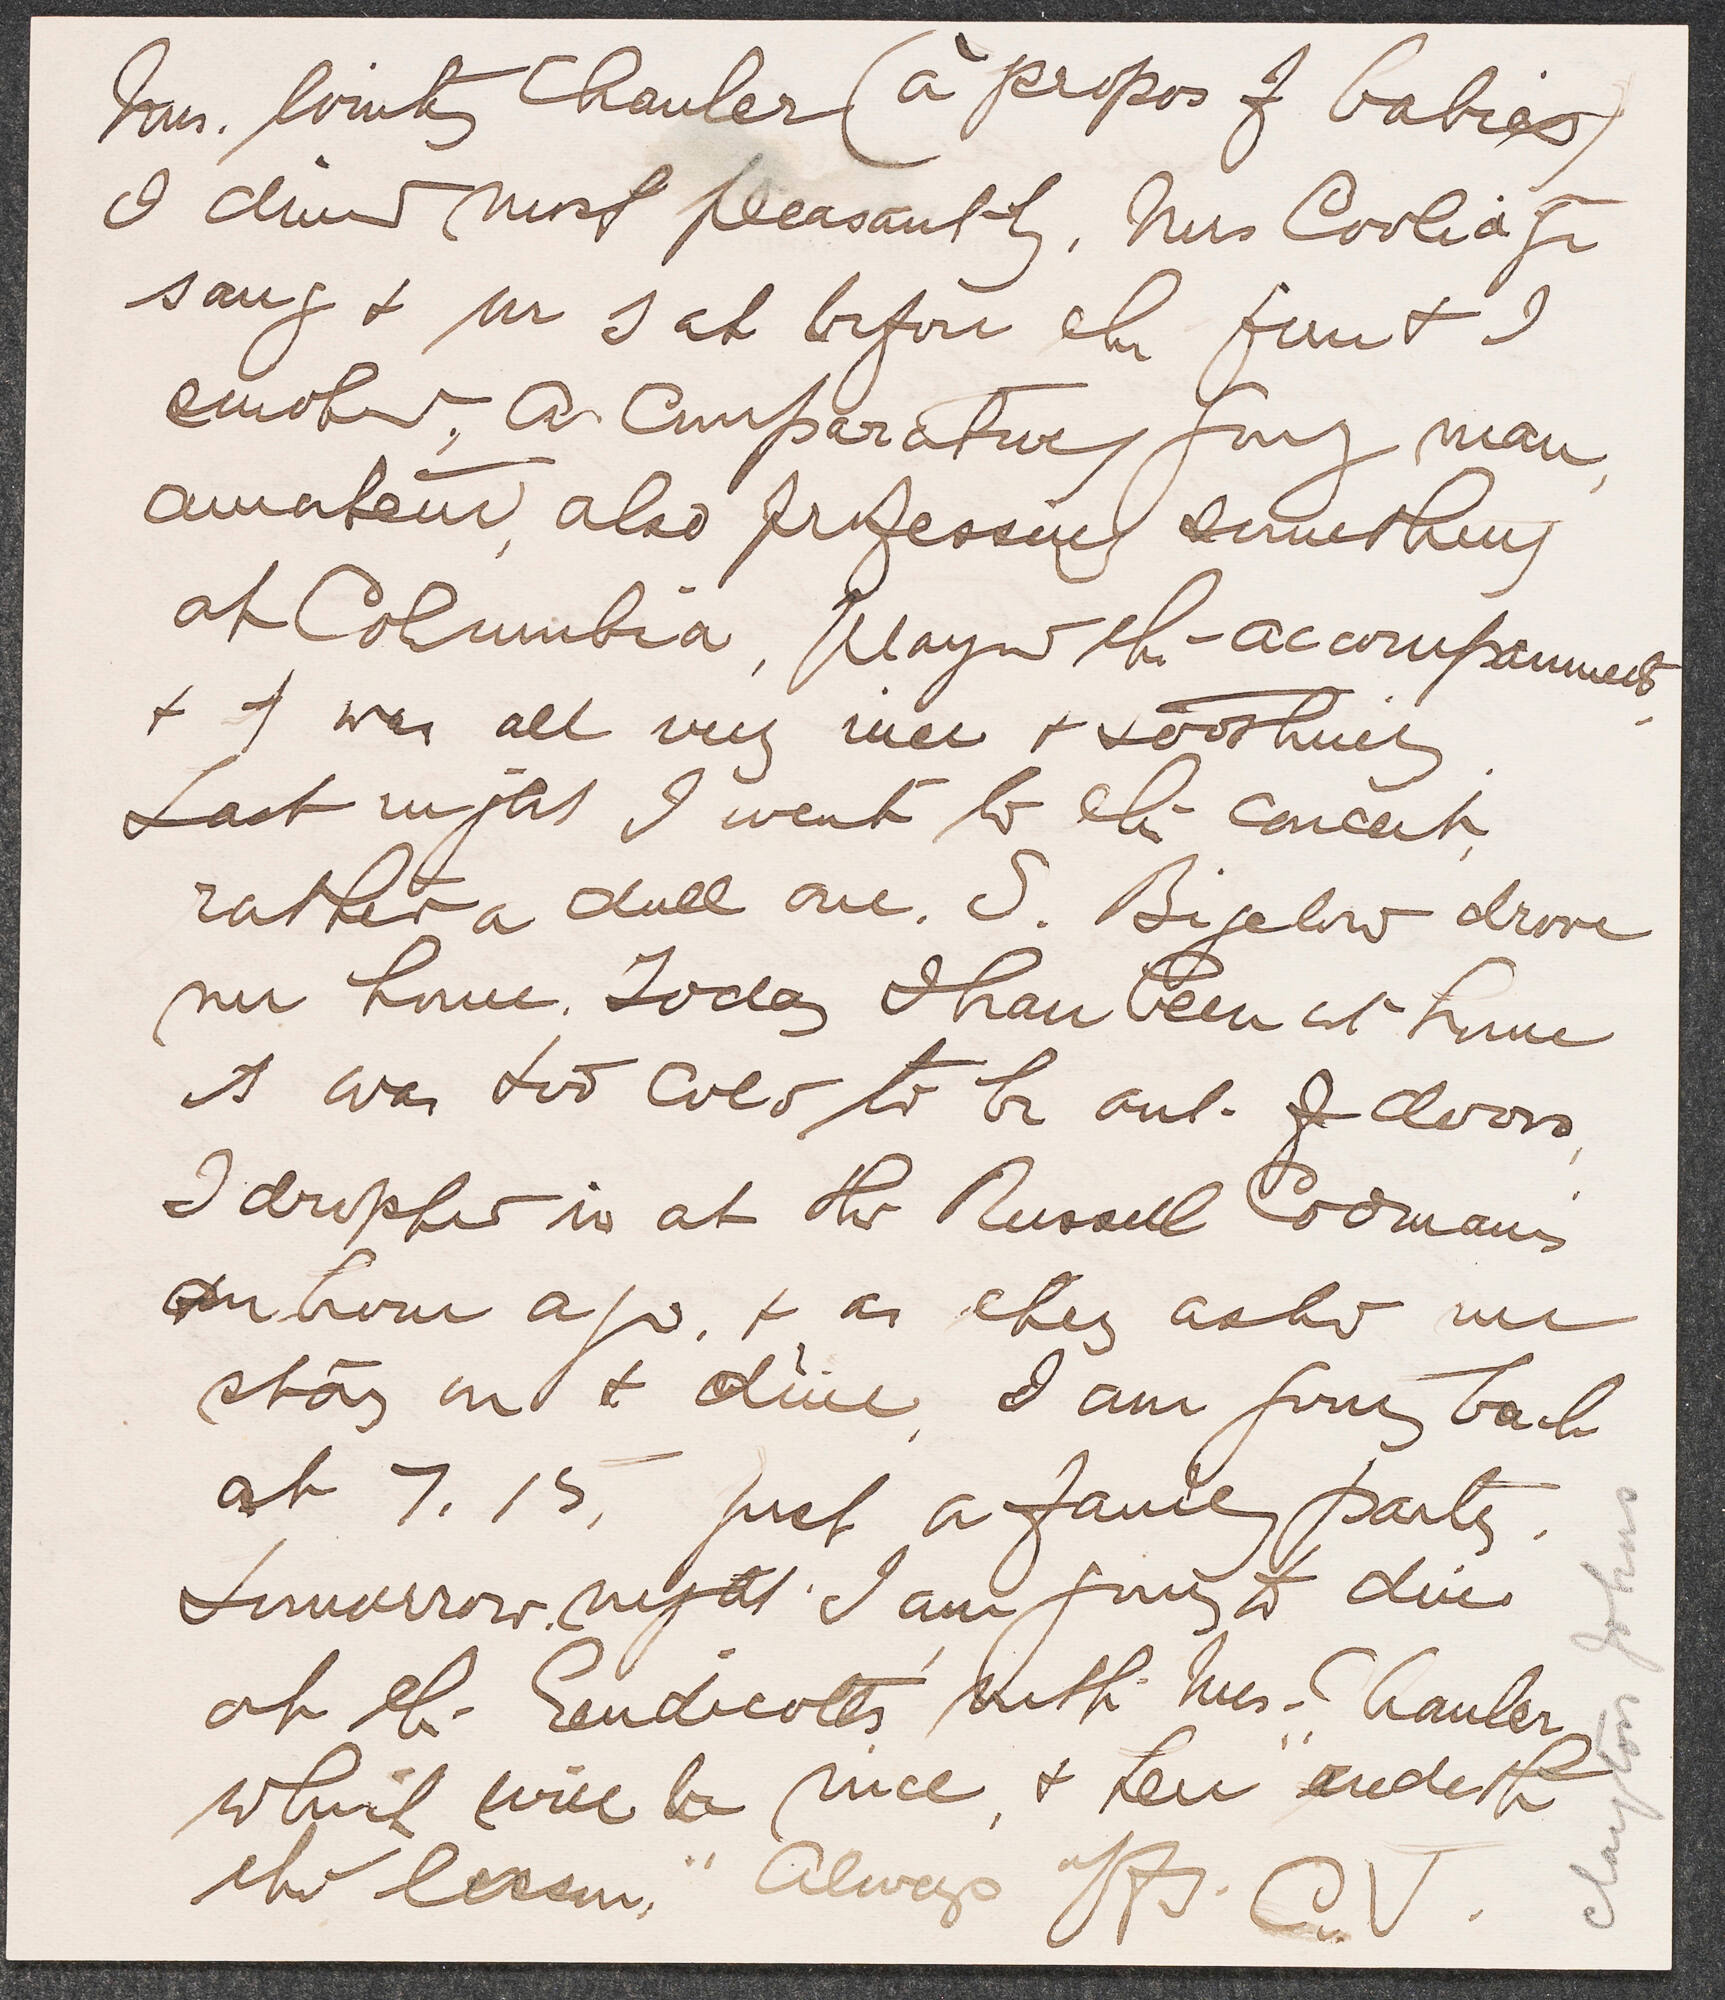 Mrs. Winty Chanler (à propos of babies)
I dined most pleasantly. Mrs Coolidge
sang & we sat before the fire & I
smoked. A comparatively young man,
amateur, also professing something
at Columbia, played the accompaniments.
& it was all very nice & soothing.
Last night I went to the concert,
rather a dull one. S. Bigelow drove
me home. Today I have been at home
it was too cold to be out of doors,
I dropped in at the Russell Codman's
an hour ago, & as they asked me
stay on & dine, I am going back
at 7.15, just a family party.
Tomorrow night I am going to dine
at the Endicotts' with Mrs. Chanler
which will be nice, & here "endeth
the lesson." Always affly. C. V.
Clayton Johns